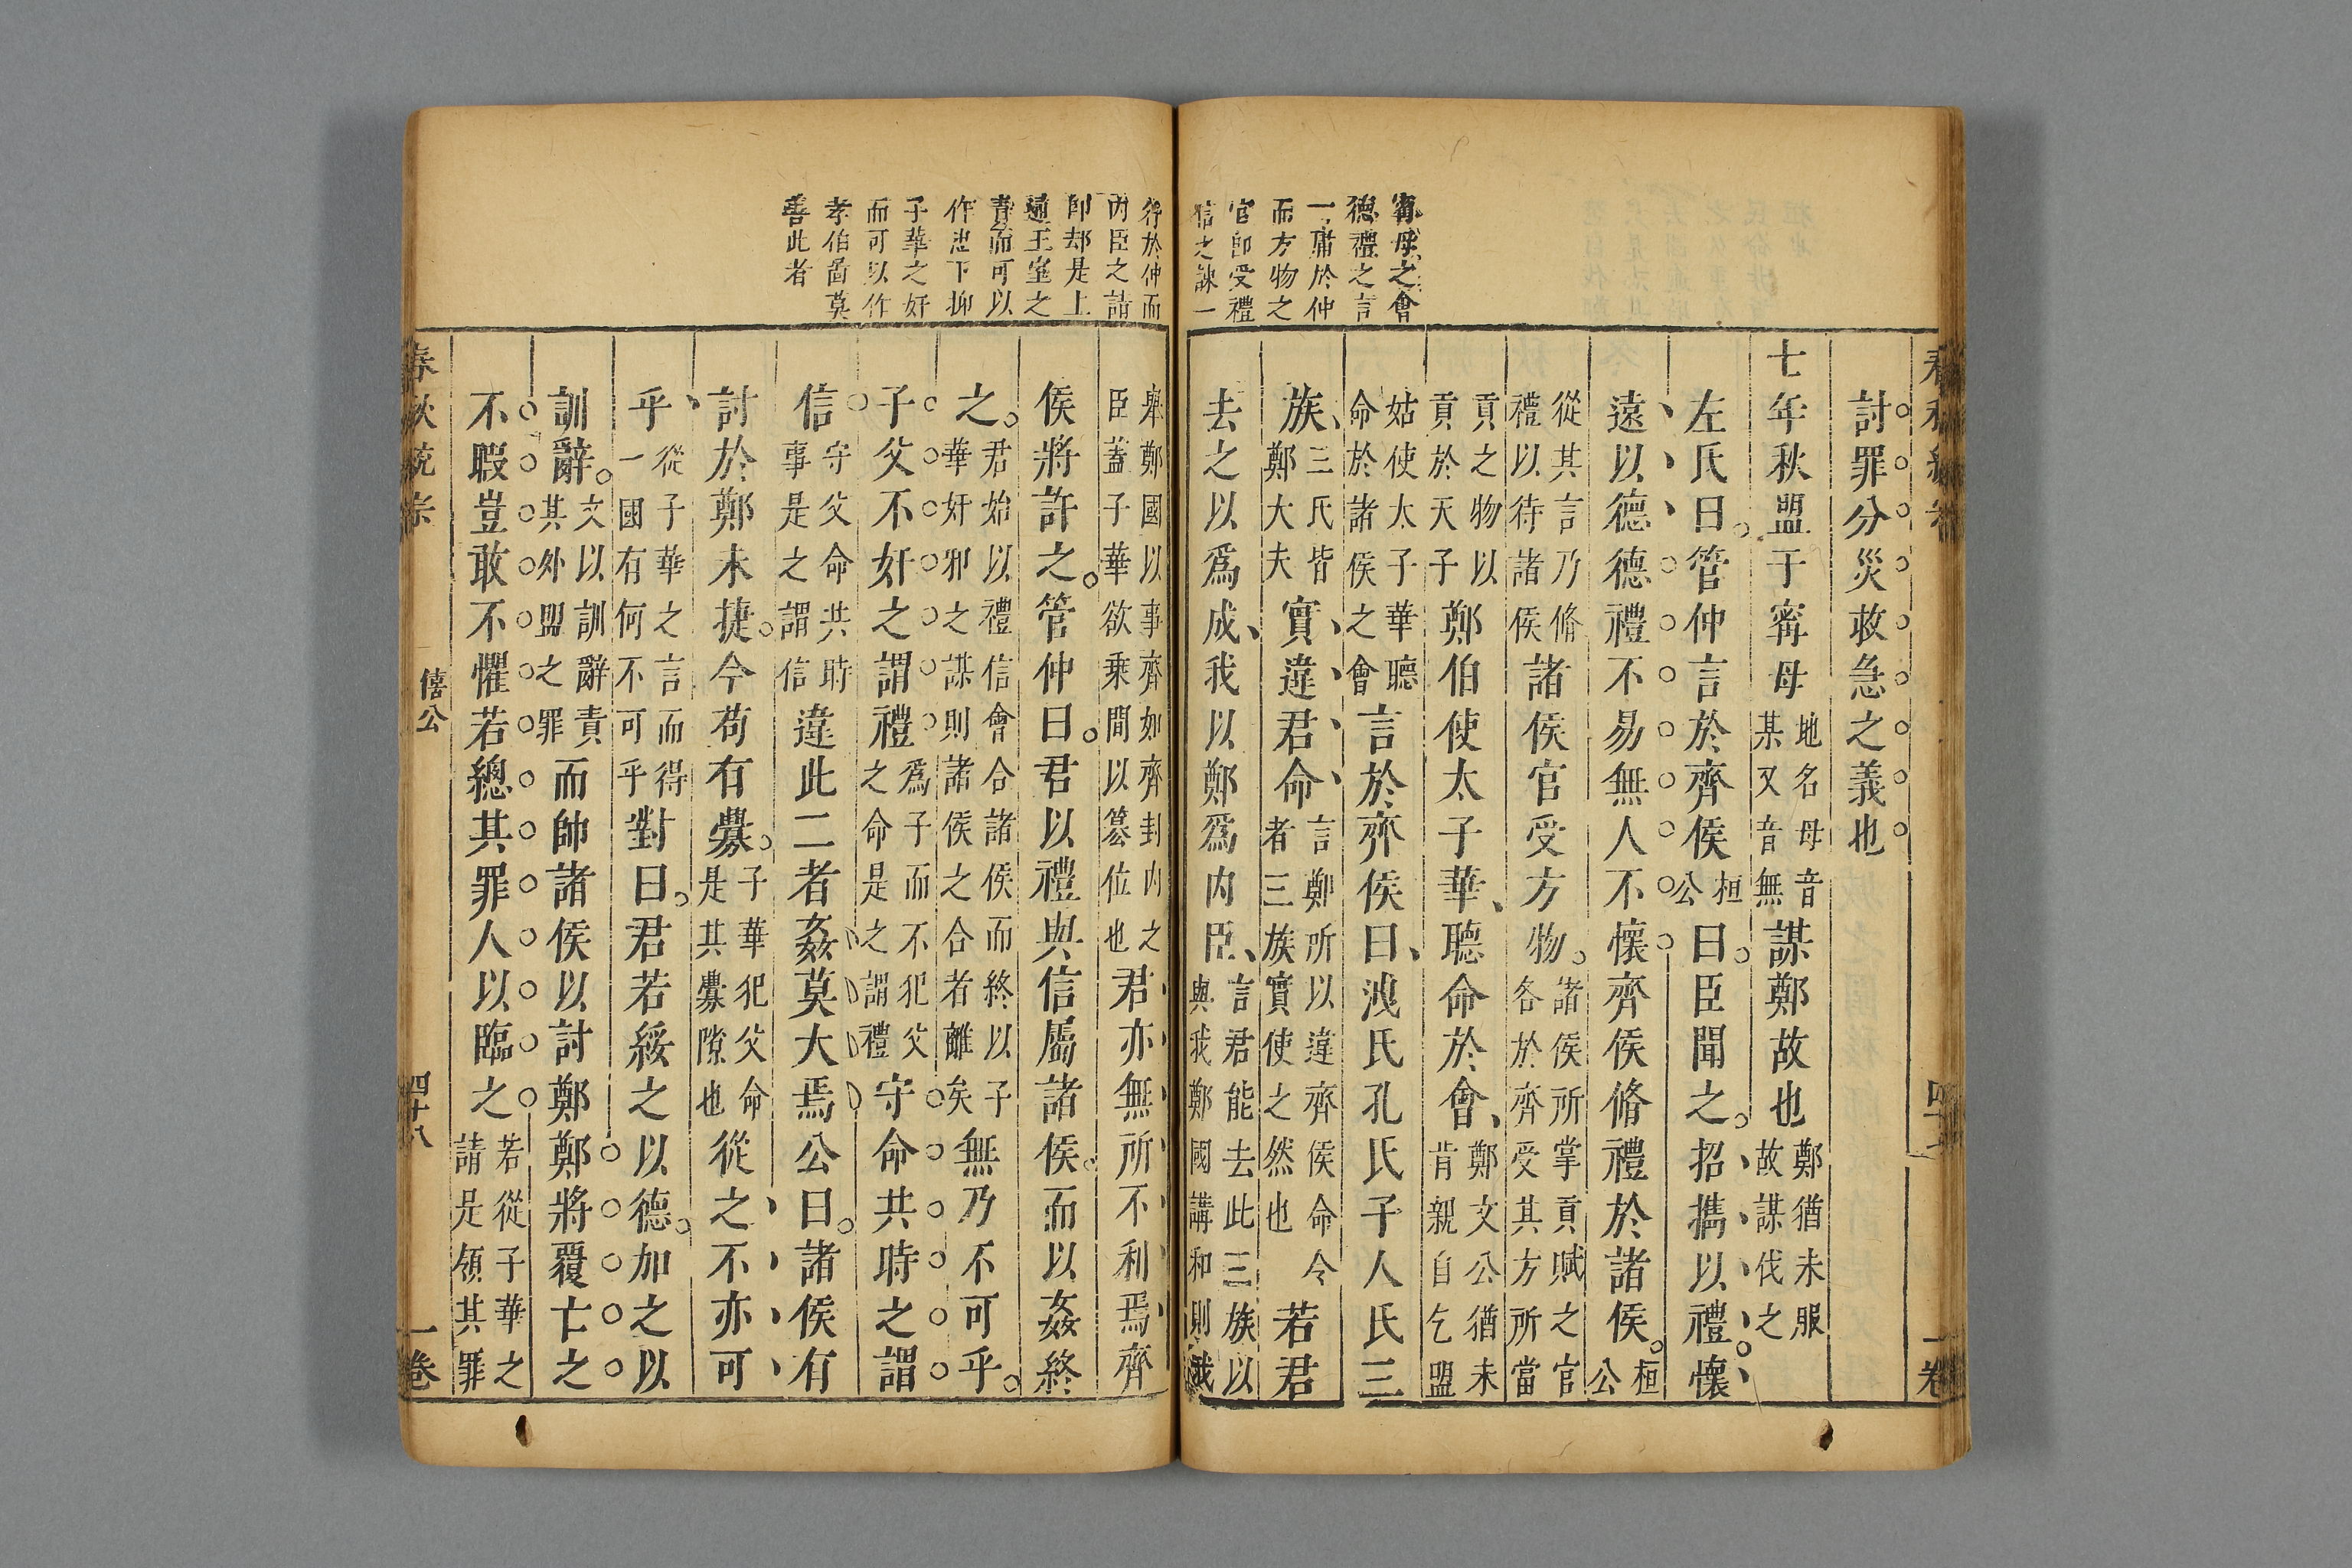 甯母之會
德禮之言
一庸於仲
而方物之
官即受禮
信之諫一
討罪分災救急之義也
七年秋盟于甯母地名母音某又音無謀鄭故也鄭猶未服故謀伐之
左氏曰管仲言於齊侯桓公曰臣聞之招攜以禮懷
遠以德德禮不易無人不懷齊侯脩禮於諸侯桓公
從其言乃脩禮以待諸侯諸侯官受方物諸侯所掌貢賦之官各於齊受其方所當
貢之物以貢於天子鄭伯使太子華聽命於會鄭文公猶未肯親自乞盟
姑使太子華聽命於諸侯之會言於齊侯曰洩氏孔氏子人氏三
族三氏皆鄭大夫實違君命言鄭所以違齊侯命令者三族實使之然也若君
去之以爲成我以鄭爲内臣言君能去此三族以與我鄭國講和則我
行於仲而
内臣之請
即却是上
通王室之
責而可以
作忠下抑
子華之奸
而可以作
孝伯啚莫
善此者
舉鄭國以事齊如齊封内之臣蓋子華欲乗間以簒位也君亦無所不利焉齊
侯將許之管仲曰君以禮與信屬諸侯而以姦終
之君始以禮信會合諸侯而終以子華奸邪之謀則諸侯之合者離矣無乃不可乎
子父不奸之謂禮爲子而不犯父之命是之謂禮守命共時之謂
信守父命共時事是之謂信違此二者姦莫大焉公曰諸侯有
討於鄭未捷今苟有釁子華犯父命是其釁隙也從之不亦可
乎從子華之言而得一國有何不可乎對曰君若綏之以德加之以
訓辭文以訓辭責其外盟之罪而帥諸侯以討鄭鄭將覆亡之
不暇豈敢不懼若總其罪人以臨之若從子華之請是領其罪
春秋統宗
僖公
四十八
一卷